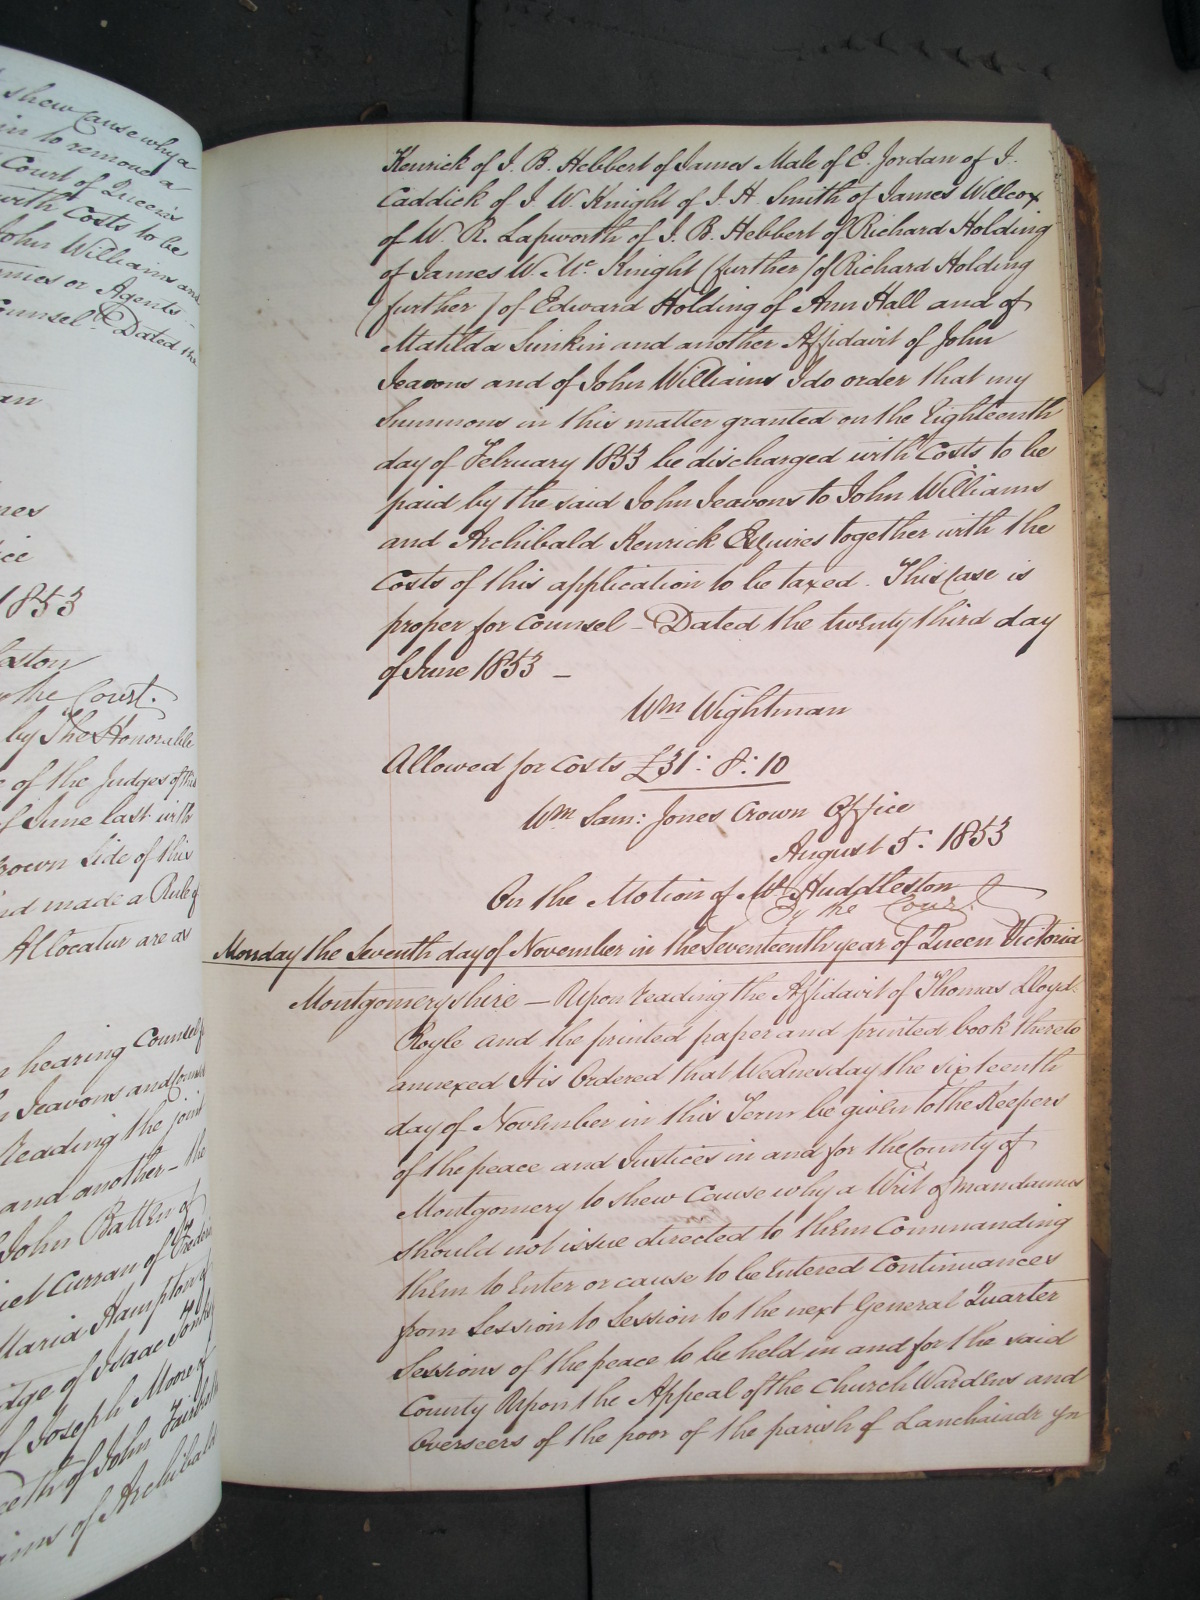 shew Cause why a
in to remove a
Court of Queen's
with Costs to be
John Williams and
Agents
Counsel. Dated the
1853
the Court.
by The Honorable
of the Judges of this
of June last with
Crown Side of this
and made a Rule of
Allocatur are as
hearing Counsel
Jeavons and
reading the joint
and another – the
John Batten of
Curran of
Maria Hampton of
of Isaac
of Joseph Moore of
of John
of Archibald
Kenrick of J. B. Hebbert of James Male of E. Jordan of J.
Caddick of J. W. Knight of J. H. Smith of James Willcox
of W. R. Lapworth of J. B. Hebbert of Richard Holding
of James W. Mc. Knight (further) of Richard Holding
(further) of Edward Holding of Ann Hall and of
Matilda Sunkin and another Affidavit of John
Jeavons and of John Williams I do order that my
Summons in this matter granted on the Eighteenth
day of February 1853 be discharged with Costs to be
paid by the said John Jeavons to John Williams
and Archibald Kenrick Esquires together with the
Costs of this application to be taxed. This Case is
proper for Counsel – Dated the twenty third day
of June 1853 –
Wm Wightman
Allowed for Costs £31: 8: 10
Wm Sam: Jones Crown Office
August 5. 1853
On the Motion of Mr. Huddleston
By the Court.
Monday the Seventh day of November in the Seventeenth year of Queen Victoria
Montgomeryshire – Upon reading the Affidavit of Thomas Lloyd
Royle and the printed paper and printed book thereto
annexed It is Ordered that Wednesday the sixteenth
day of November in this Term be given to the Keepers
of the peace and Justices in and for the County of
Montgomery to shew Cause why a Writ of Mandamus
should not issue directed to them Commanding
them to Enter or cause to be Entered Continuances
from Session to Session to the next General Quarter
Sessions of the peace to be held in and for the said
County Upon the Appeal of the Church Wardens and
Overseers of the poor of the parish of Lanchaiadr yn